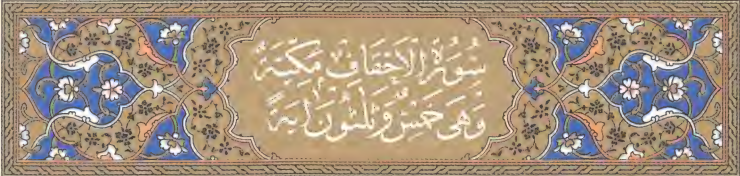 سُورَةُ الْأَحْقَافِ مَكِّيَّةٌ
وَهِيَ خَمْسٌ وَثَلٰثُونَ اٰيَةً